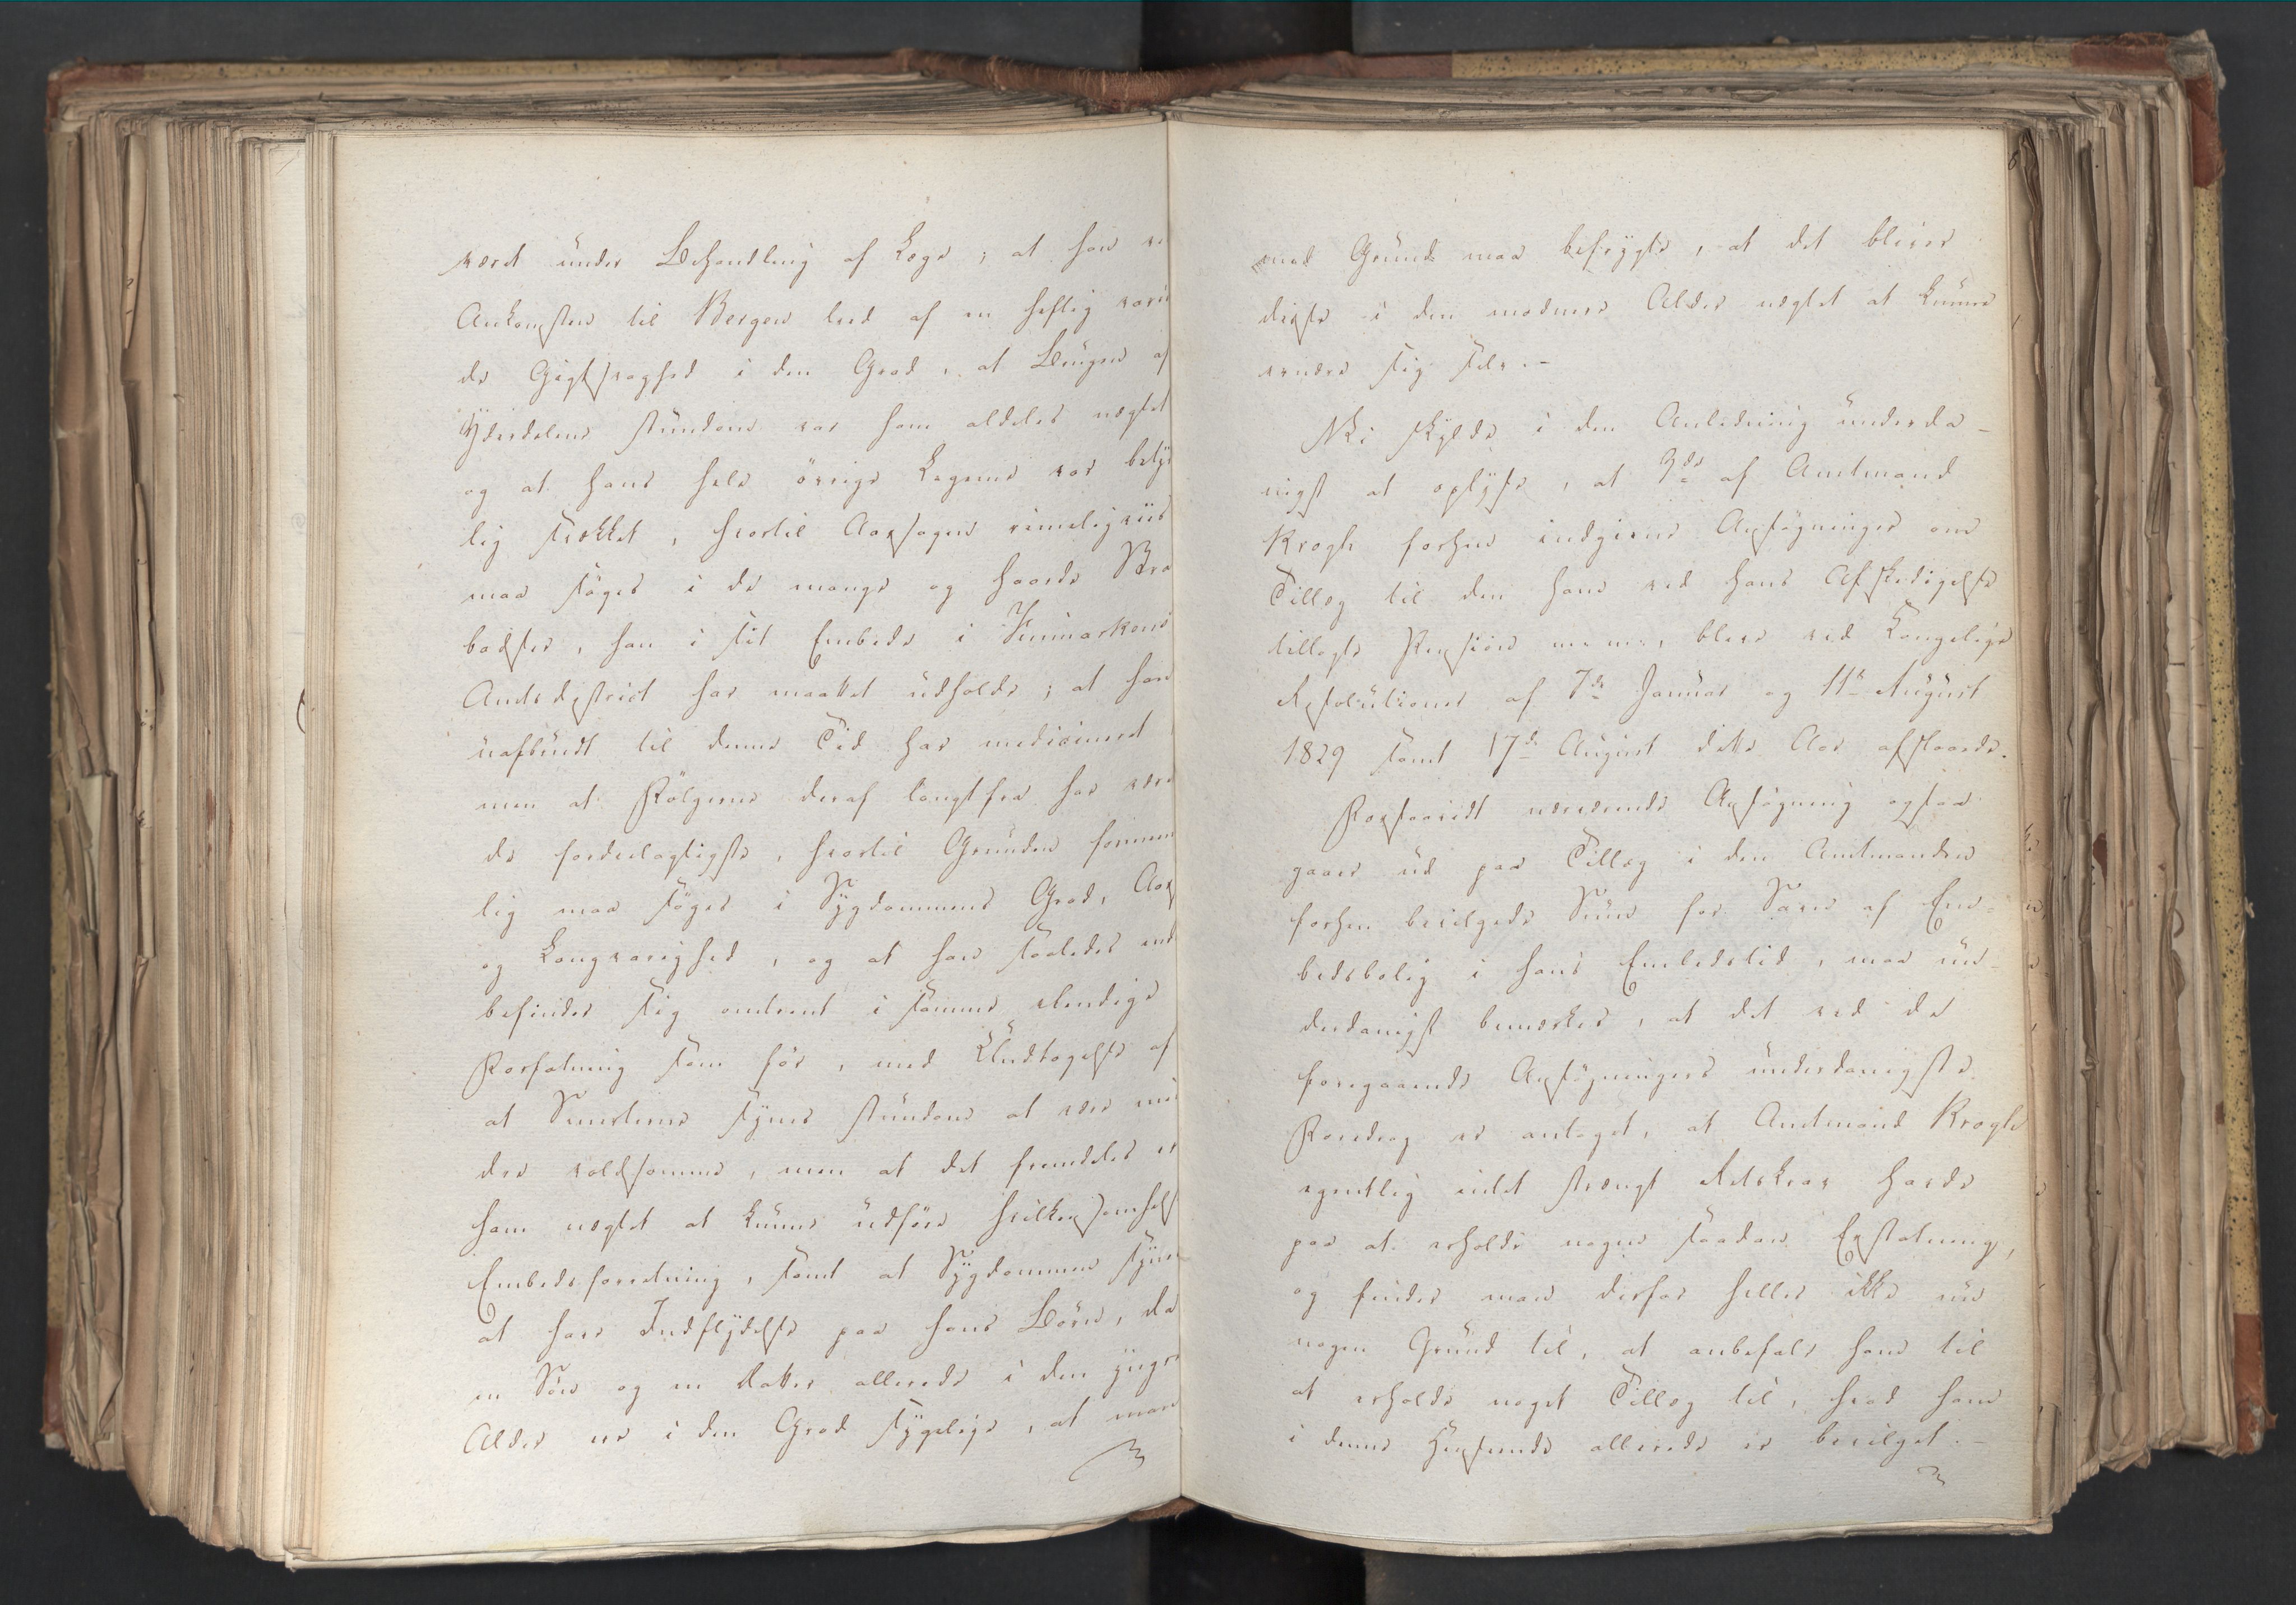 været under Behandling af Læge; at han ve
Ankomsten til Bergen leed af en heftig vari
de Gigtsvaghed i den Grad, at Brugen af
Yderdelene stundom var ham aldeles nægtet
og at hans hele övrige Legeme var betyd
lig svækket, hvortil Aarsagen rimeligviis
maa söges i de mange og haarde Stra
badser, han i sit Embede i Finmarkens
Amtsdistrict har maattet udholde; at han
uafbrudt til denne Tid har medicineret
men at Fölgerne deraf langtfra har være
de fordeelagtigste, hvortil Grunden fornem
lig maa söges i Sygdommens Grad, Aars
og Langvarighed, og at han saaledes end
befinder sig omtrent i samme elendige
Forfatning som för, med Undtagelse af
at Smerterne synes stundom at være min
dre voldsomme, men at det fremdeles er
ham nægtet at kunne udföre hvilkensomhelst
Embedsforretning, samt at Sygdommen synes
at have Indflydelse paa hans Börn, da
en Sön og en Datter allerede i den yngre
Alder ere i den Grad sygelige, at man
med Grund maa befrygte, at det bliver
disse i den modnere Alder nægtet at kunne
ernære sig selv.-
Vi skulde i den Anledning underda-
nigst at oplyse, at 3de af Amtmand
Krogh forhen indgivne Ansögninger om
Tillæg til den ham ved hans Afskedigelse
tillagte Pension m: m:, bleve ved Kongelige
Resolutioner af 7de Januar og 11te August
1829 samt 17de August dette Aar afslaaede.
Forsaavidt nærværende Ansögning ogsaa
gaaer ud paa Tillæg i den Amtmanden
forhen bevilgede Sum for Savn af Em-
bedsbolig i hans Embedstid, maa un-
derdanigst bemærkes, at det ved de
foregaaende Ansögningers underdanigste
Foredrag er antaget, at Amtmand Krogh
egentlig intet strængt Retskrav havde
paa at erholde nogen saadan Erstatning,
og finder man derfor heller ikke nu
nogen Grund til, at anbefale ham til
at erholde noget Tillæg til, hvad ham
i denne Henseende allerede er bevilget.-